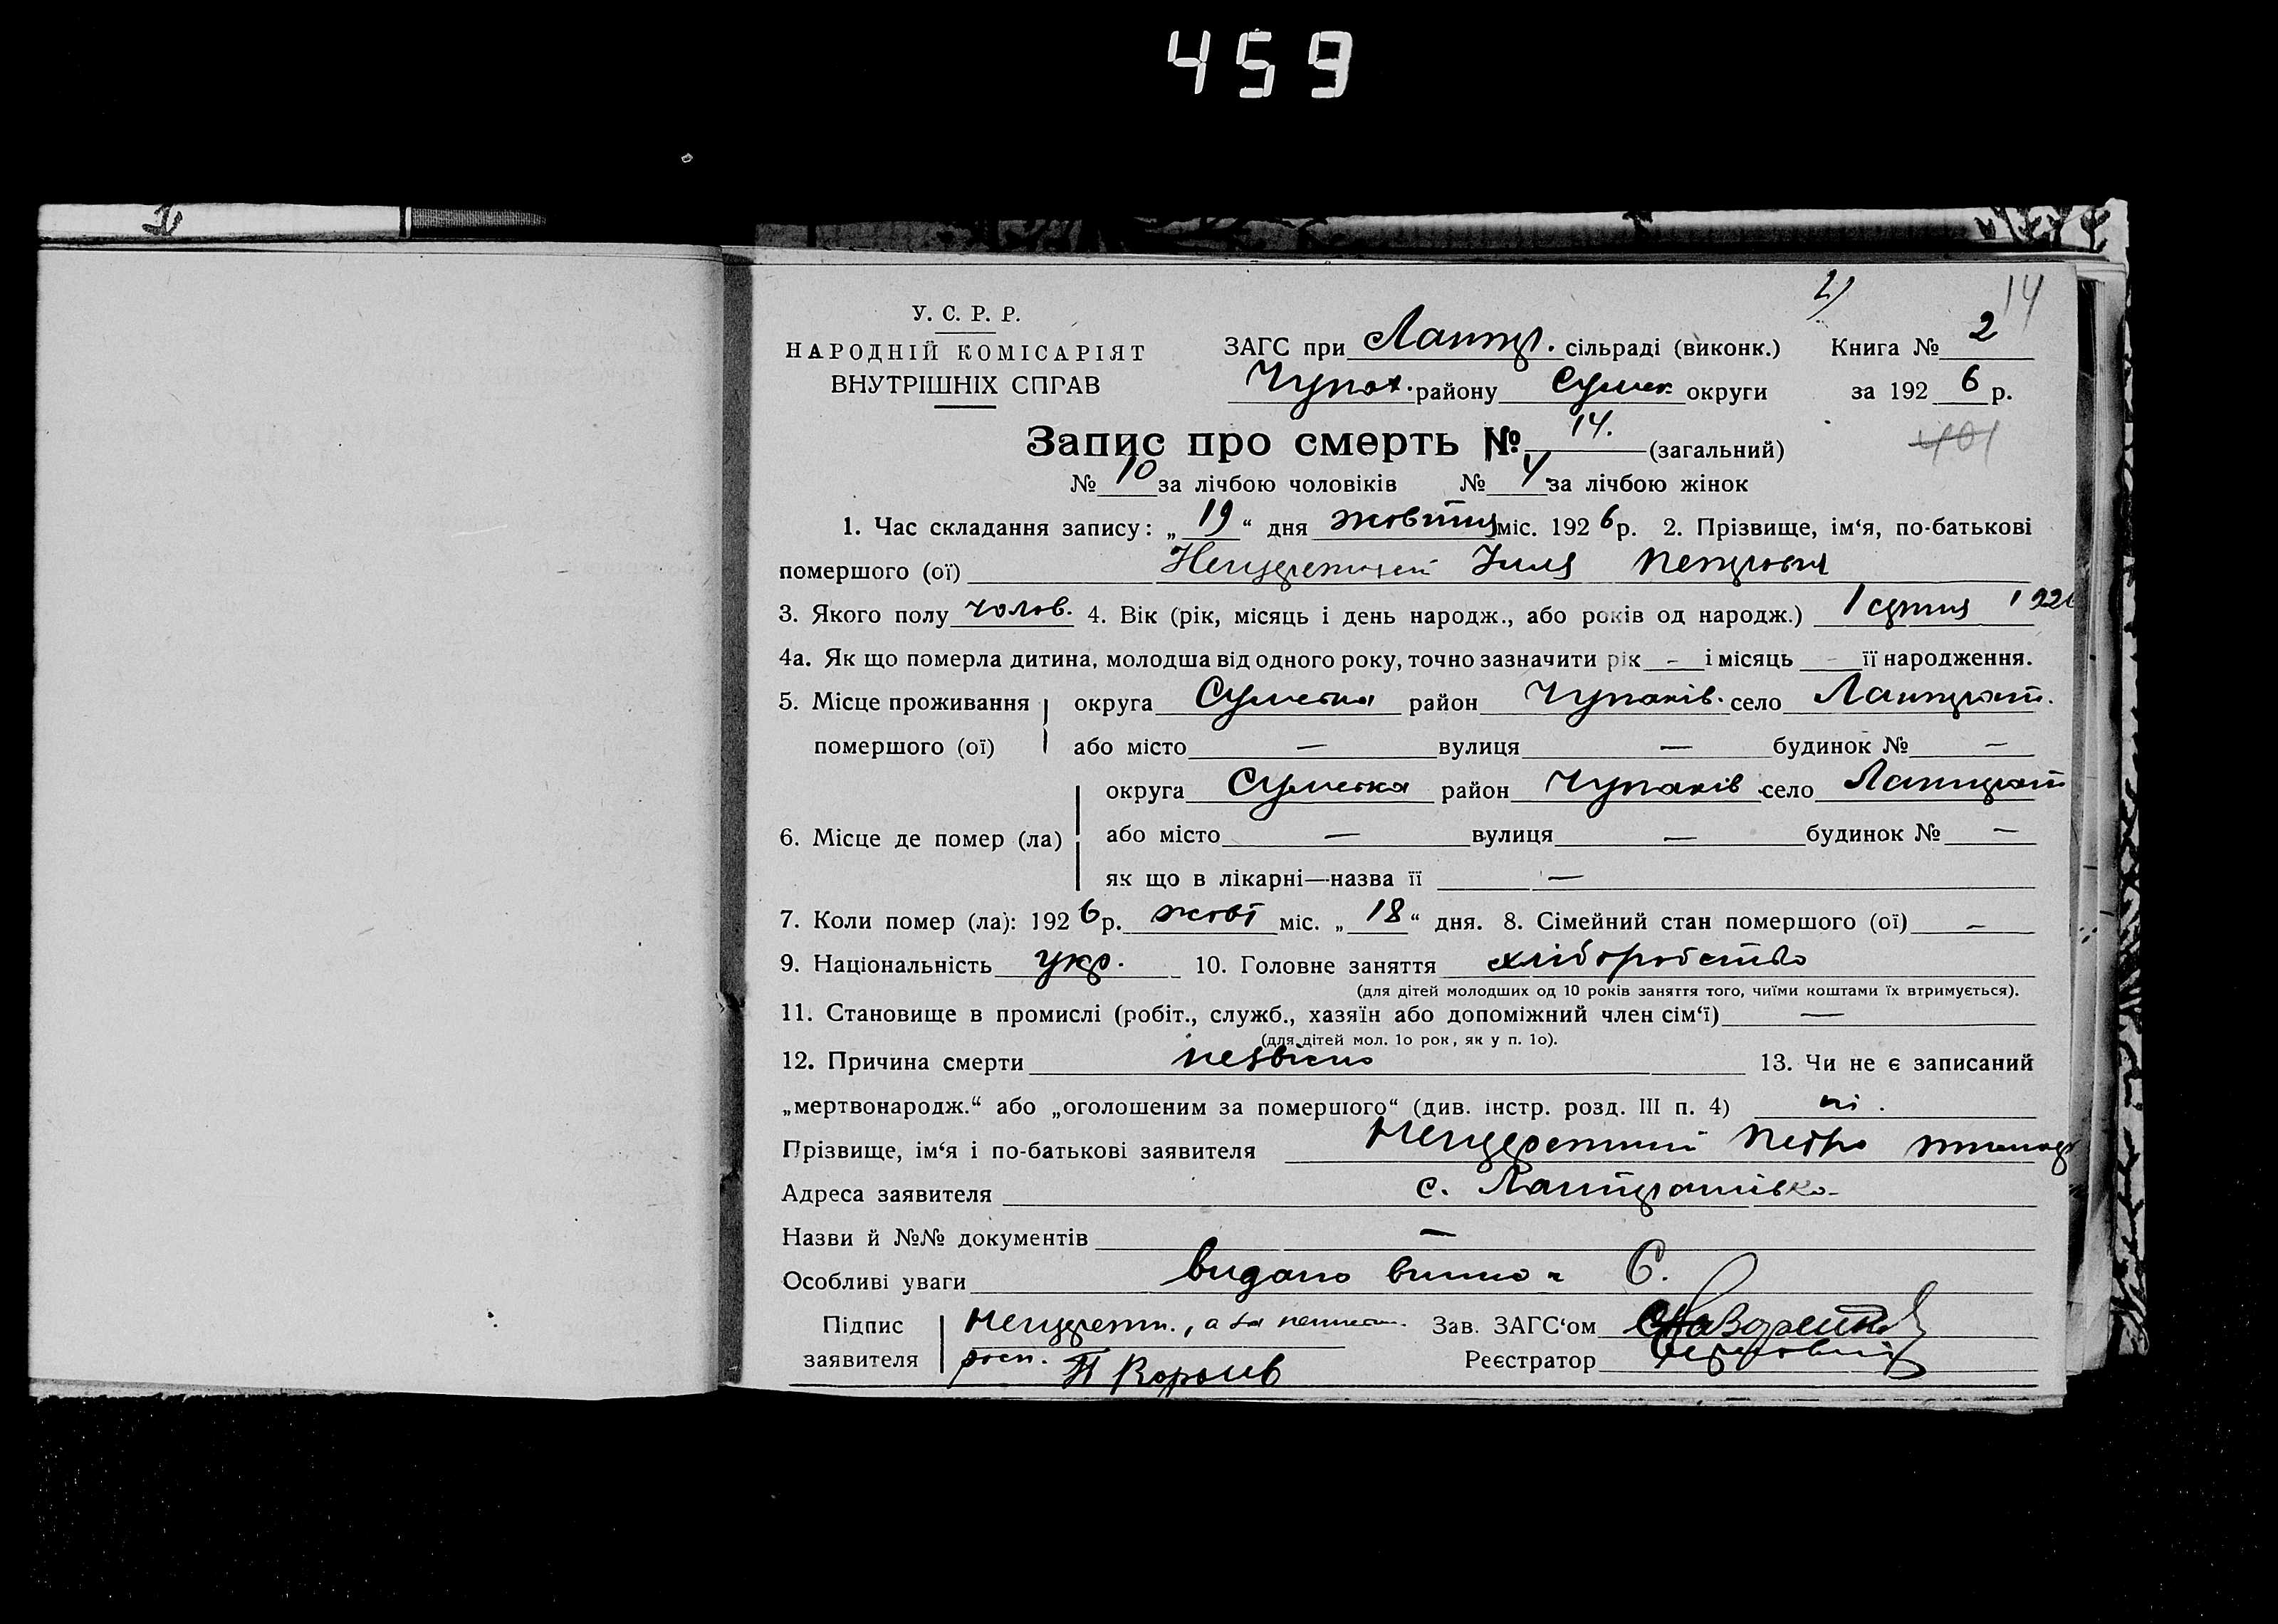 459
2) 14
У. С. Р. Р.
НАРОДНІЙ КОМІСАРІЯТ
ВНУТРІШНІХ СПРАВ
ЗАГС при сільраді (виконк.) Книга № 2
Чупах. району Сумск округи за 1926 р.
401
Запис про смерть № 14. (загальний)
№ 10 за лічбою чоловіків № 4 за лічбою жінок
1. Час складання запису: „19“ дня жовтня міс. 1926 р. 2. Прізвище, ім‘я, по-батькові
помершого (ої) Ілля Петрович
3. Якого полу чолов. 4. Вік (рік, місяць і день народж., або років од народж.) 1 192
4а. Як що померла дитина, молодша від одного року, точно зазначити рік - і місяць - її народження.
5. Місце проживання помершого (ої) округа Сумська район Чупахів. село
або місто — вулиця — будинок № —
6. Місце де помер (ла) округа Сумська район Чупахів село
або місто — вулиця — будинок № —
як що в лікарні—назва її —
7. Коли помер (ла): 1926 р. жовт міс. „18“ дня. 8. Сімейний стан помершого (ої) —
9. Національність укр. 10. Головне заняття хліборобство
(для дітей молодших од 10 років заняття того, чиїми коштами їх втримується).
11. Становище в промислі (робіт., служб., хазяїн або допоміжний член сім‘ї) —
(для дітей мол. 1о рок, як у п. 1о).
12. Причина смерти незвісно 13. Чи не є записаний
„мертвонародж.“ або „оголошеним за помершого“ (див. інстр. розд. III п. 4) ні.
Прізвище, ім‘я і по-батькові заявителя Петро
Адреса заявителя с.
Назви й №№ документів —
Особливі уваги видано С.
Підпис заявителя , а за Зав. ЗАГС‘ом
росп. П Королів Реєстратор